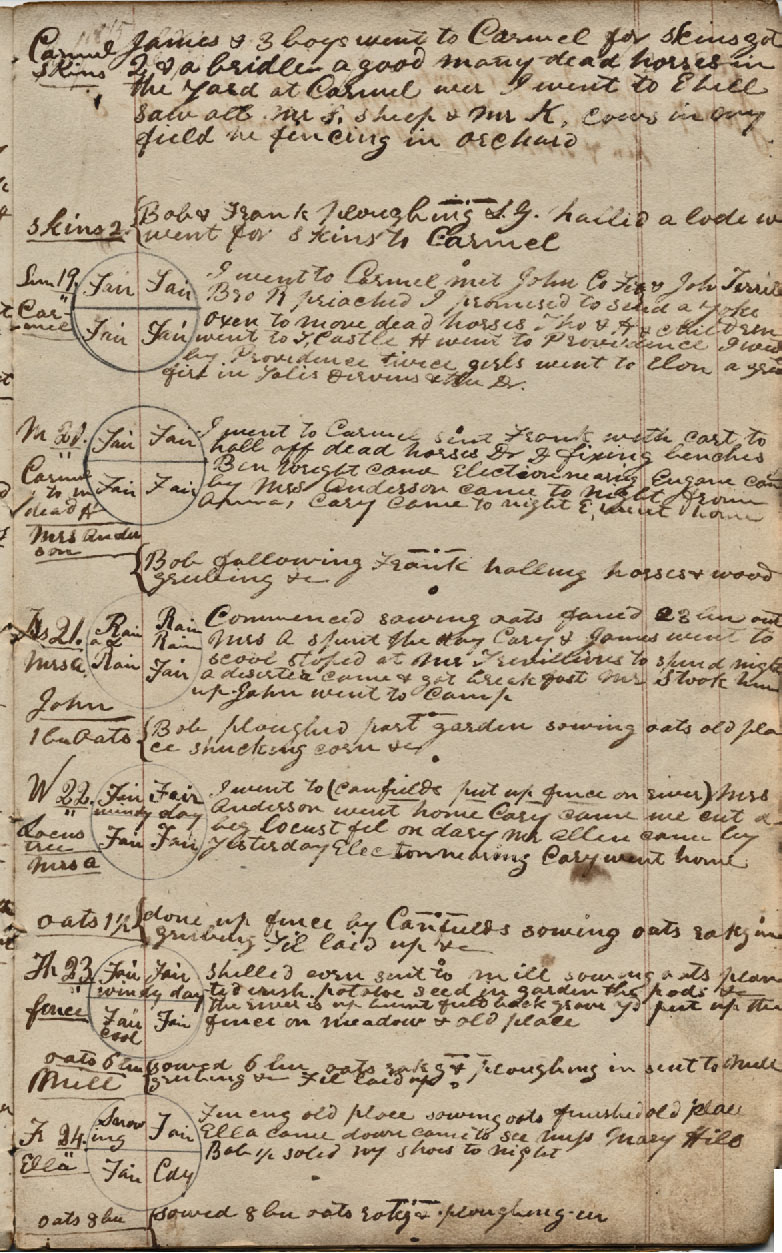 Carmel James & 3 boys went to Carmel for skins got
skins 2 & a bridle a good many dead horses in
the yard at Carmel wer I went to E hill
saw all Mr S. sheep & Mr K, cows in my
field he fencing in orchard
skins 2 Bob & Frank ploughing & J.G. halled a lode w
went for skins to Carmel
Sun 19. Fair Fair I went to Carmel met John Co Fox & Joh Terrill
Car- Bro R preached I promised to send a yoke
mel Fair Fair oxen to move dead horses Tho & H & children
went to S, Castle H went to Providence I went
by Providence twice girls went to Elon a
first in Dr.
M 20. Fair Fair I went to Carmel sent Frank with cart to
hall off dead horses Dr J fixing benches
Carmel Fair Fair Ben Wright came Electionnearing Eugane came
to m by Mrs Anderson came to night from
dead H Anna, Cary came to night E, went home
Mrs Ander
son
Bob following Frank halling horses & wood
grubing &c
Ts 21. Rain Rain Commenced sowing oats 28 bu out
Rain Mrs A spent the day Cary & James went to
Mrs A. Rain Fair scool stoped at Mr Trevilliers to spend night
a deserter came & got breckfast Mr S took him
up John went to Camp
John
1 bu Oats Bob ploughed part garden sowing oats old pla
ce shucking corn &c
W 22. Fair Fair I went to (canfields put up fence on river) Mrs
windy day Anderson went home Cary came we cut a
Locus Fair Fair beg Locust fel on dary Mr Allen came by
tree yesterday Electionnearing Cary went home
Mrs A
oats 1½ done up fence by Canfields sowing oats raking
grubing Fil laid up &c
Th 23 Fair Fair shelled corn sent to mill sowing oats plan
windy day ted irish potatoe seed in garden the pods &c
fence Fair Fair the river is up burnt field back grave yd put up the
cool fence on meadow & old place
oats 6 bu sowed 6 bu oats rakg & ploughing in sent to mill
Mill grubing &c Fil laid up
F 24. Snow Fair Fineng old place sowing oats finished old place
ing Ella came down came to see miss Mary Hill
Ella Fair Cdy Bob ½ soled my shoes to night
oats 8 bu sowed 8 bu oats rakg & ploughing in